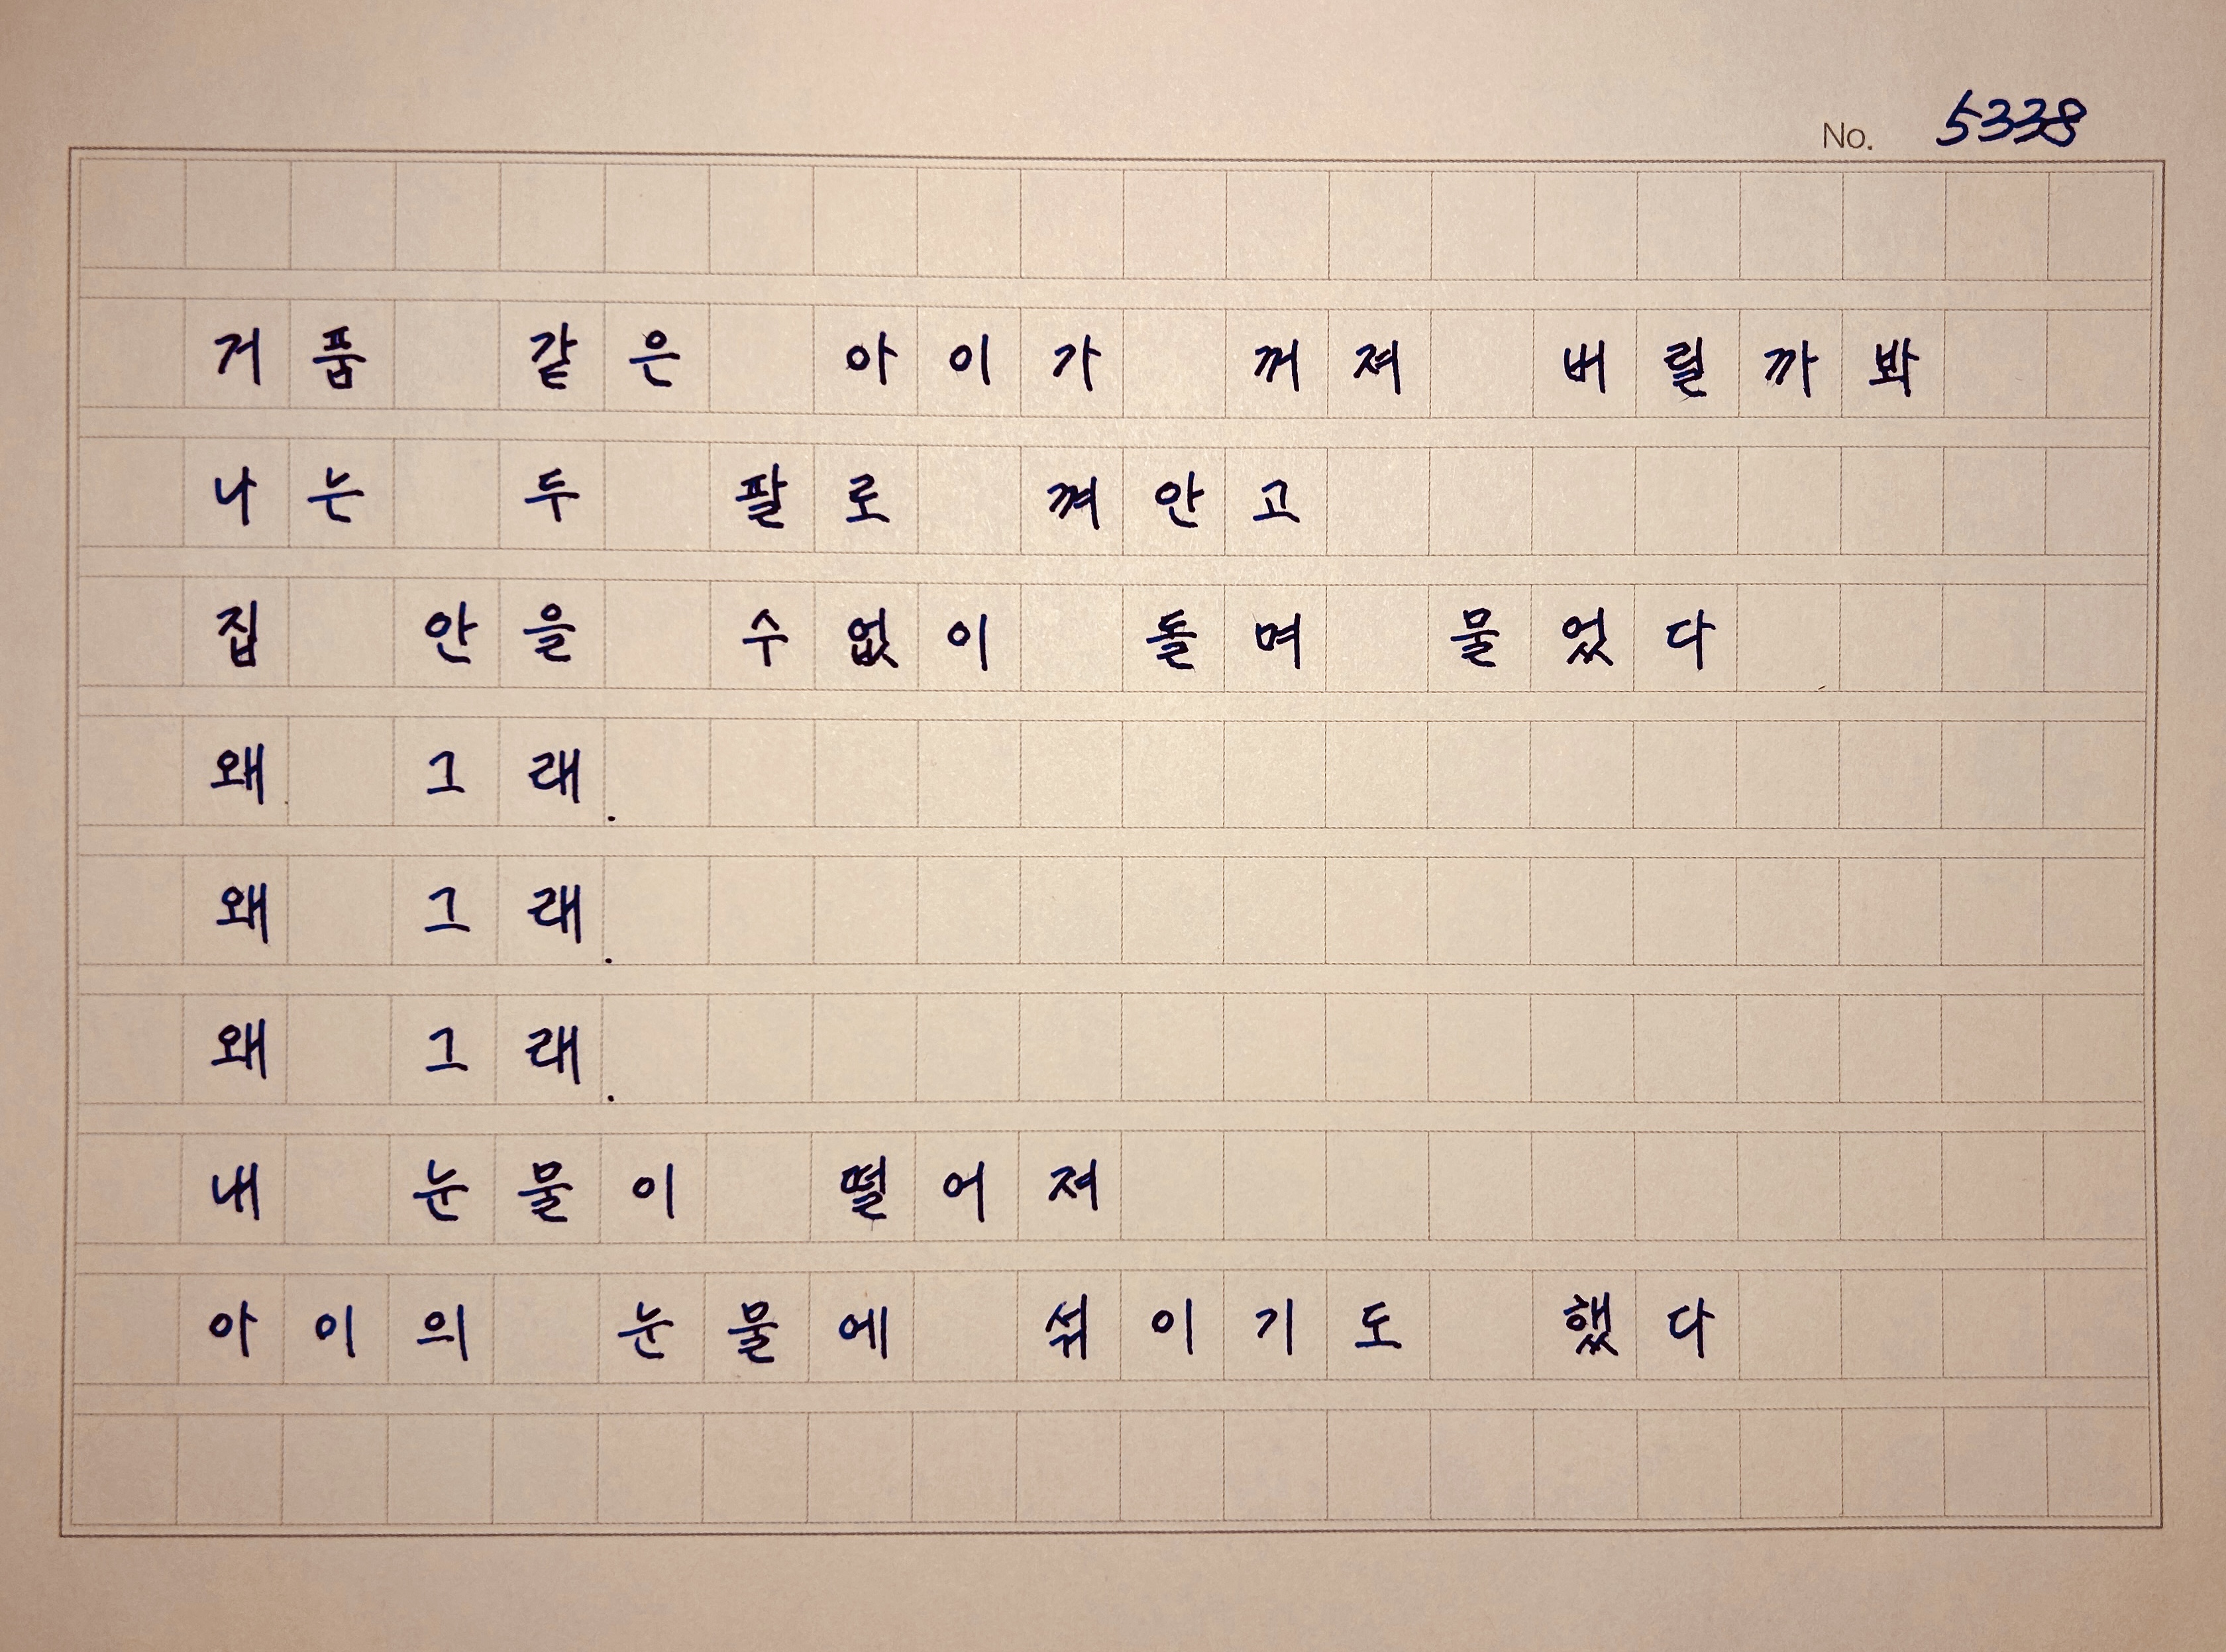 No. 5338
거품 같은 아이가 꺼져 버릴까봐
나는 두 팔로 껴안고
집 안을 수없이 돌며 물었다
왜 그래.
왜 그래.
왜 그래.
내 눈물이 떨어져
아이의 눈물에 섞이기도 했다